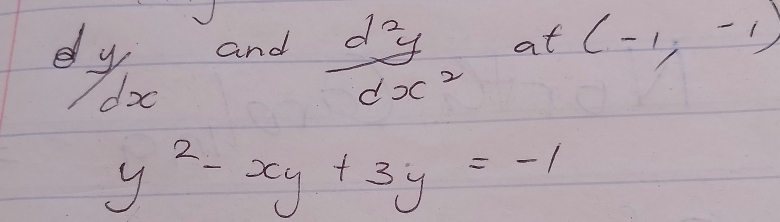 dy/dx and d²y/dx² at (-1, -1)
y² - xy + 3y = -1